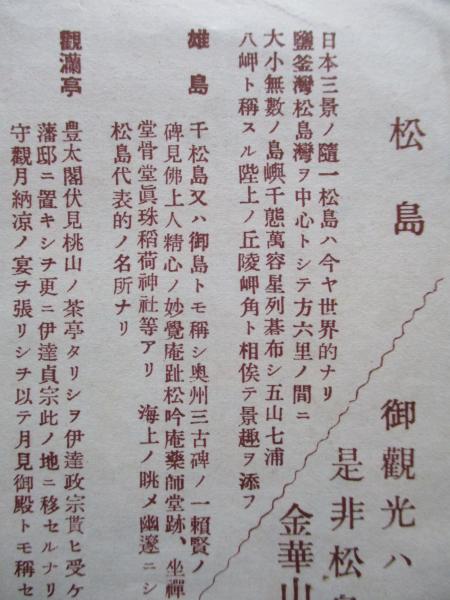 御觀光ハ
是非松島
金華山
松島
日本三景ノ隨一松島ハ今ヤ世界的ナリ
鹽釜灣松島灣ヲ中心トシテ方六里ノ間ニ
大小無數ノ島嶼千態萬容星列碁布シ五山七浦
八岬ト稱スル陸上ノ丘陵岬角ト相俟テ景趣ヲ添フ
雄島 千松島又ハ御島トモ稱シ奧州三古碑ノ一賴賢ノ
碑見佛上人精心ノ妙覺庵趾松吟庵藥師堂跡、坐禪
堂骨堂眞珠稻荷神社等アリ 海上ノ眺メ幽邃ニシ
松島代表的ノ名所ナリ
觀瀾亭 豊太閤伏見桃山ノ茶亭タリシヲ伊達政宗貰ヒ受ケ
藩邸ニ置キシヲ更ニ伊達貞宗此ノ地ニ移セルナリ
守觀月納凉ノ宴ヲ張リシヲ以テ月見御殿トモ稱セ